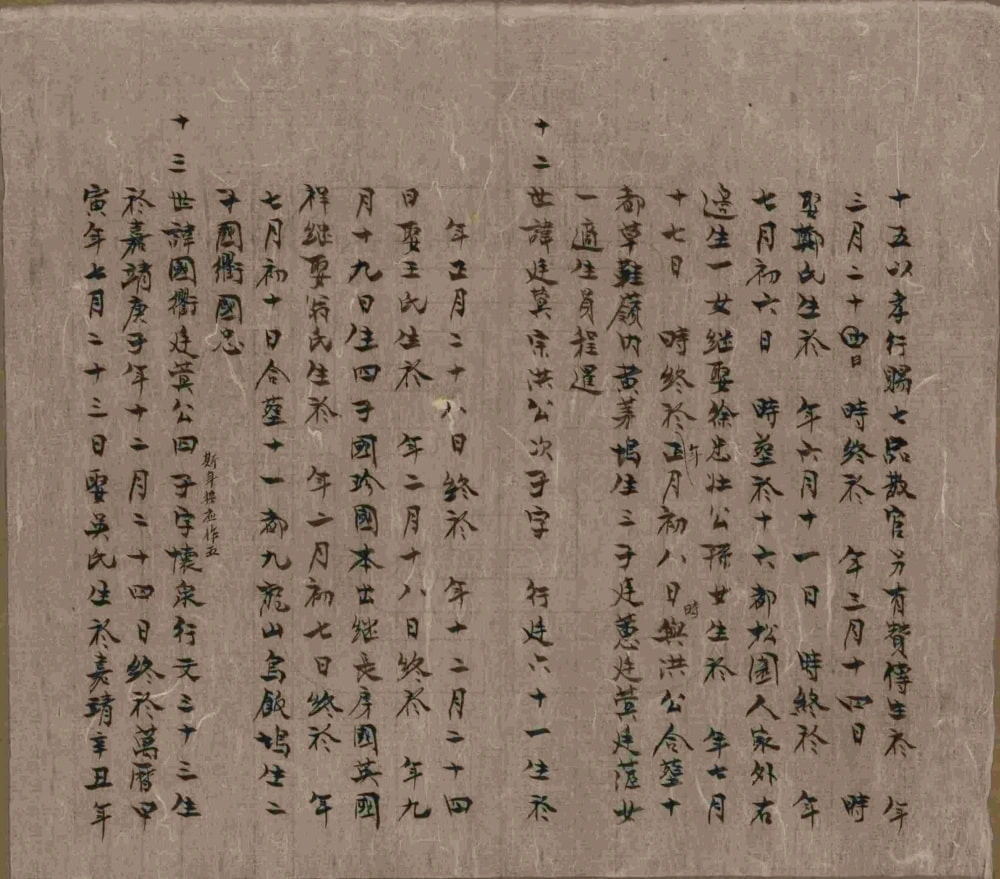 十五以孝行賜七品散官另有贊傳生於　年
三月二十四日　時終於　年三月十四日　時
娶鄭氏生於　年六月十一日　時終於　年
七月初六日　時塟於十六都松園人家外右
邊生一女継娶徐忠壯公孫女生於　年七月
十七日　時終於年正月初八日時與洪公合塟十
都草鞋嶺内黄茅塢生三子廷蕙廷蓂廷蓮女
一適生員程暹
十二世諱廷蓂宗洪公次子字　行廷六十一生於
年五月二十八日終於　年十二月二十四
日娶王氏生於　年二月十八日終於　年九
月十九日生四子國珍國本出継長房國英國
祥継娶翁氏生於　年二月初七日終於　年
七月初十日合塟十一都九龍山烏飯塢生二
子國衢國忠
十三世諱國衢廷蓂公四子字懷泉行文三十三生
於嘉靖庚子年十二月二十四日終於萬曆甲
寅年七月二十三日娶吳氏生於嘉靖辛丑年